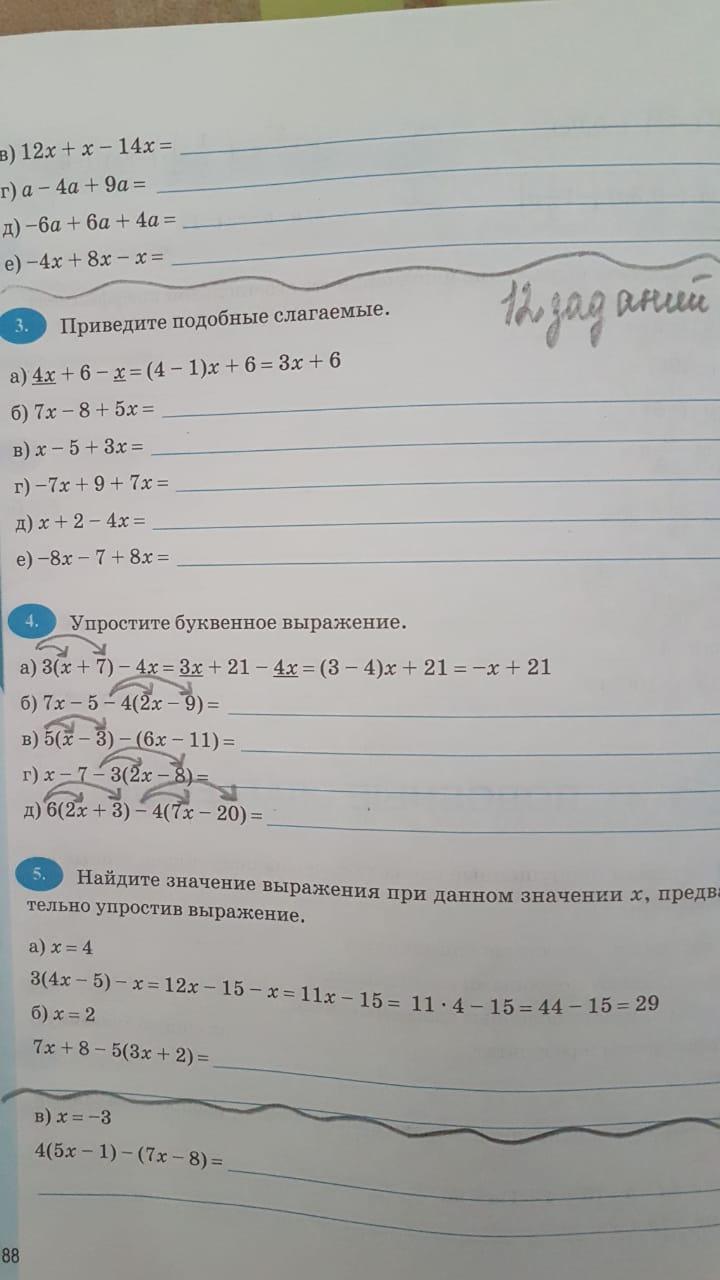 в) 12x + x − 14x =
г) a − 4a + 9a =
д) −6a + 6a + 4a =
е) −4x + 8x − x =
12 заданий
3. Приведите подобные слагаемые.
а) 4x + 6 − x = (4 − 1)x + 6 = 3x + 6
б) 7x − 8 + 5x =
в) x − 5 + 3x =
г) −7x + 9 + 7x =
д) x + 2 − 4x =
е) −8x − 7 + 8x =
4. Упростите буквенное выражение.
а) 3(x + 7) − 4x = 3x + 21 − 4x = (3 − 4)x + 21 = −x + 21
б) 7x − 5 − 4(2x − 9) =
в) 5(x − 3) − (6x − 11) =
г) x − 7 − 3(2x − 8) =
д) 6(2x + 3) − 4(7x − 20) =
5. Найдите значение выражения при данном значении x, предва
тельно упростив выражение.
а) x = 4
3(4x − 5) − x = 12x − 15 − x = 11x − 15 = 11 · 4 − 15 = 44 − 15 = 29
б) x = 2
7x + 8 − 5(3x + 2) =
в) x = −3
4(5x − 1) − (7x − 8) =
88